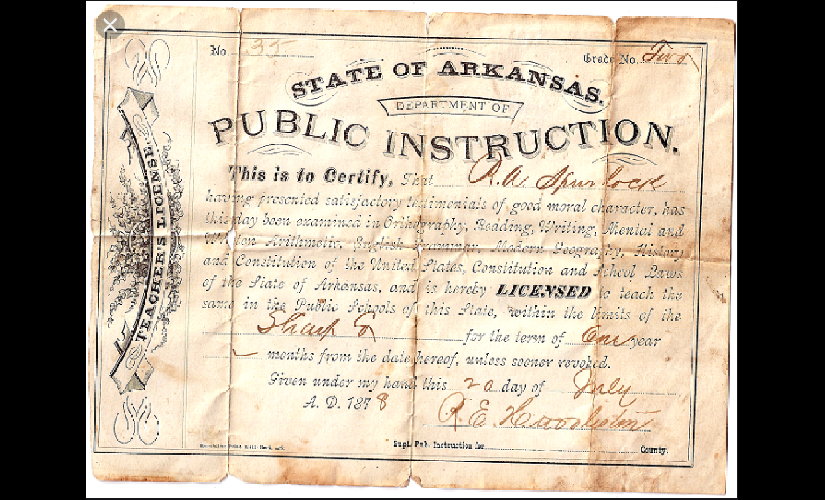 No 35
Grade No. Two
STATE OF ARKANSAS.
DEPARTMENT OF
PUBLIC INSTRUCTION.
TEACHER'S LICENSE.
This is to Certify, That R. A. Spurlock
having presented satisfactory testimonials of good moral character, has
this day been examined in Orthography, Reading, Writing, Mental and
Written Arithmetic, English Grammar, Modern Geography, History
and Constitution of the United States, Constitution and School Laws
of the State of Arkansas, and is hereby LICENSED to teach the
same in the Public Schools of this State, within the limits of the
Sharp Co for the term of One year
months from the date hereof, unless sooner revoked.
Given under my hand this 20 day of July
A. D. 1878
R. E.
Supt. Pub. Instruction for County.